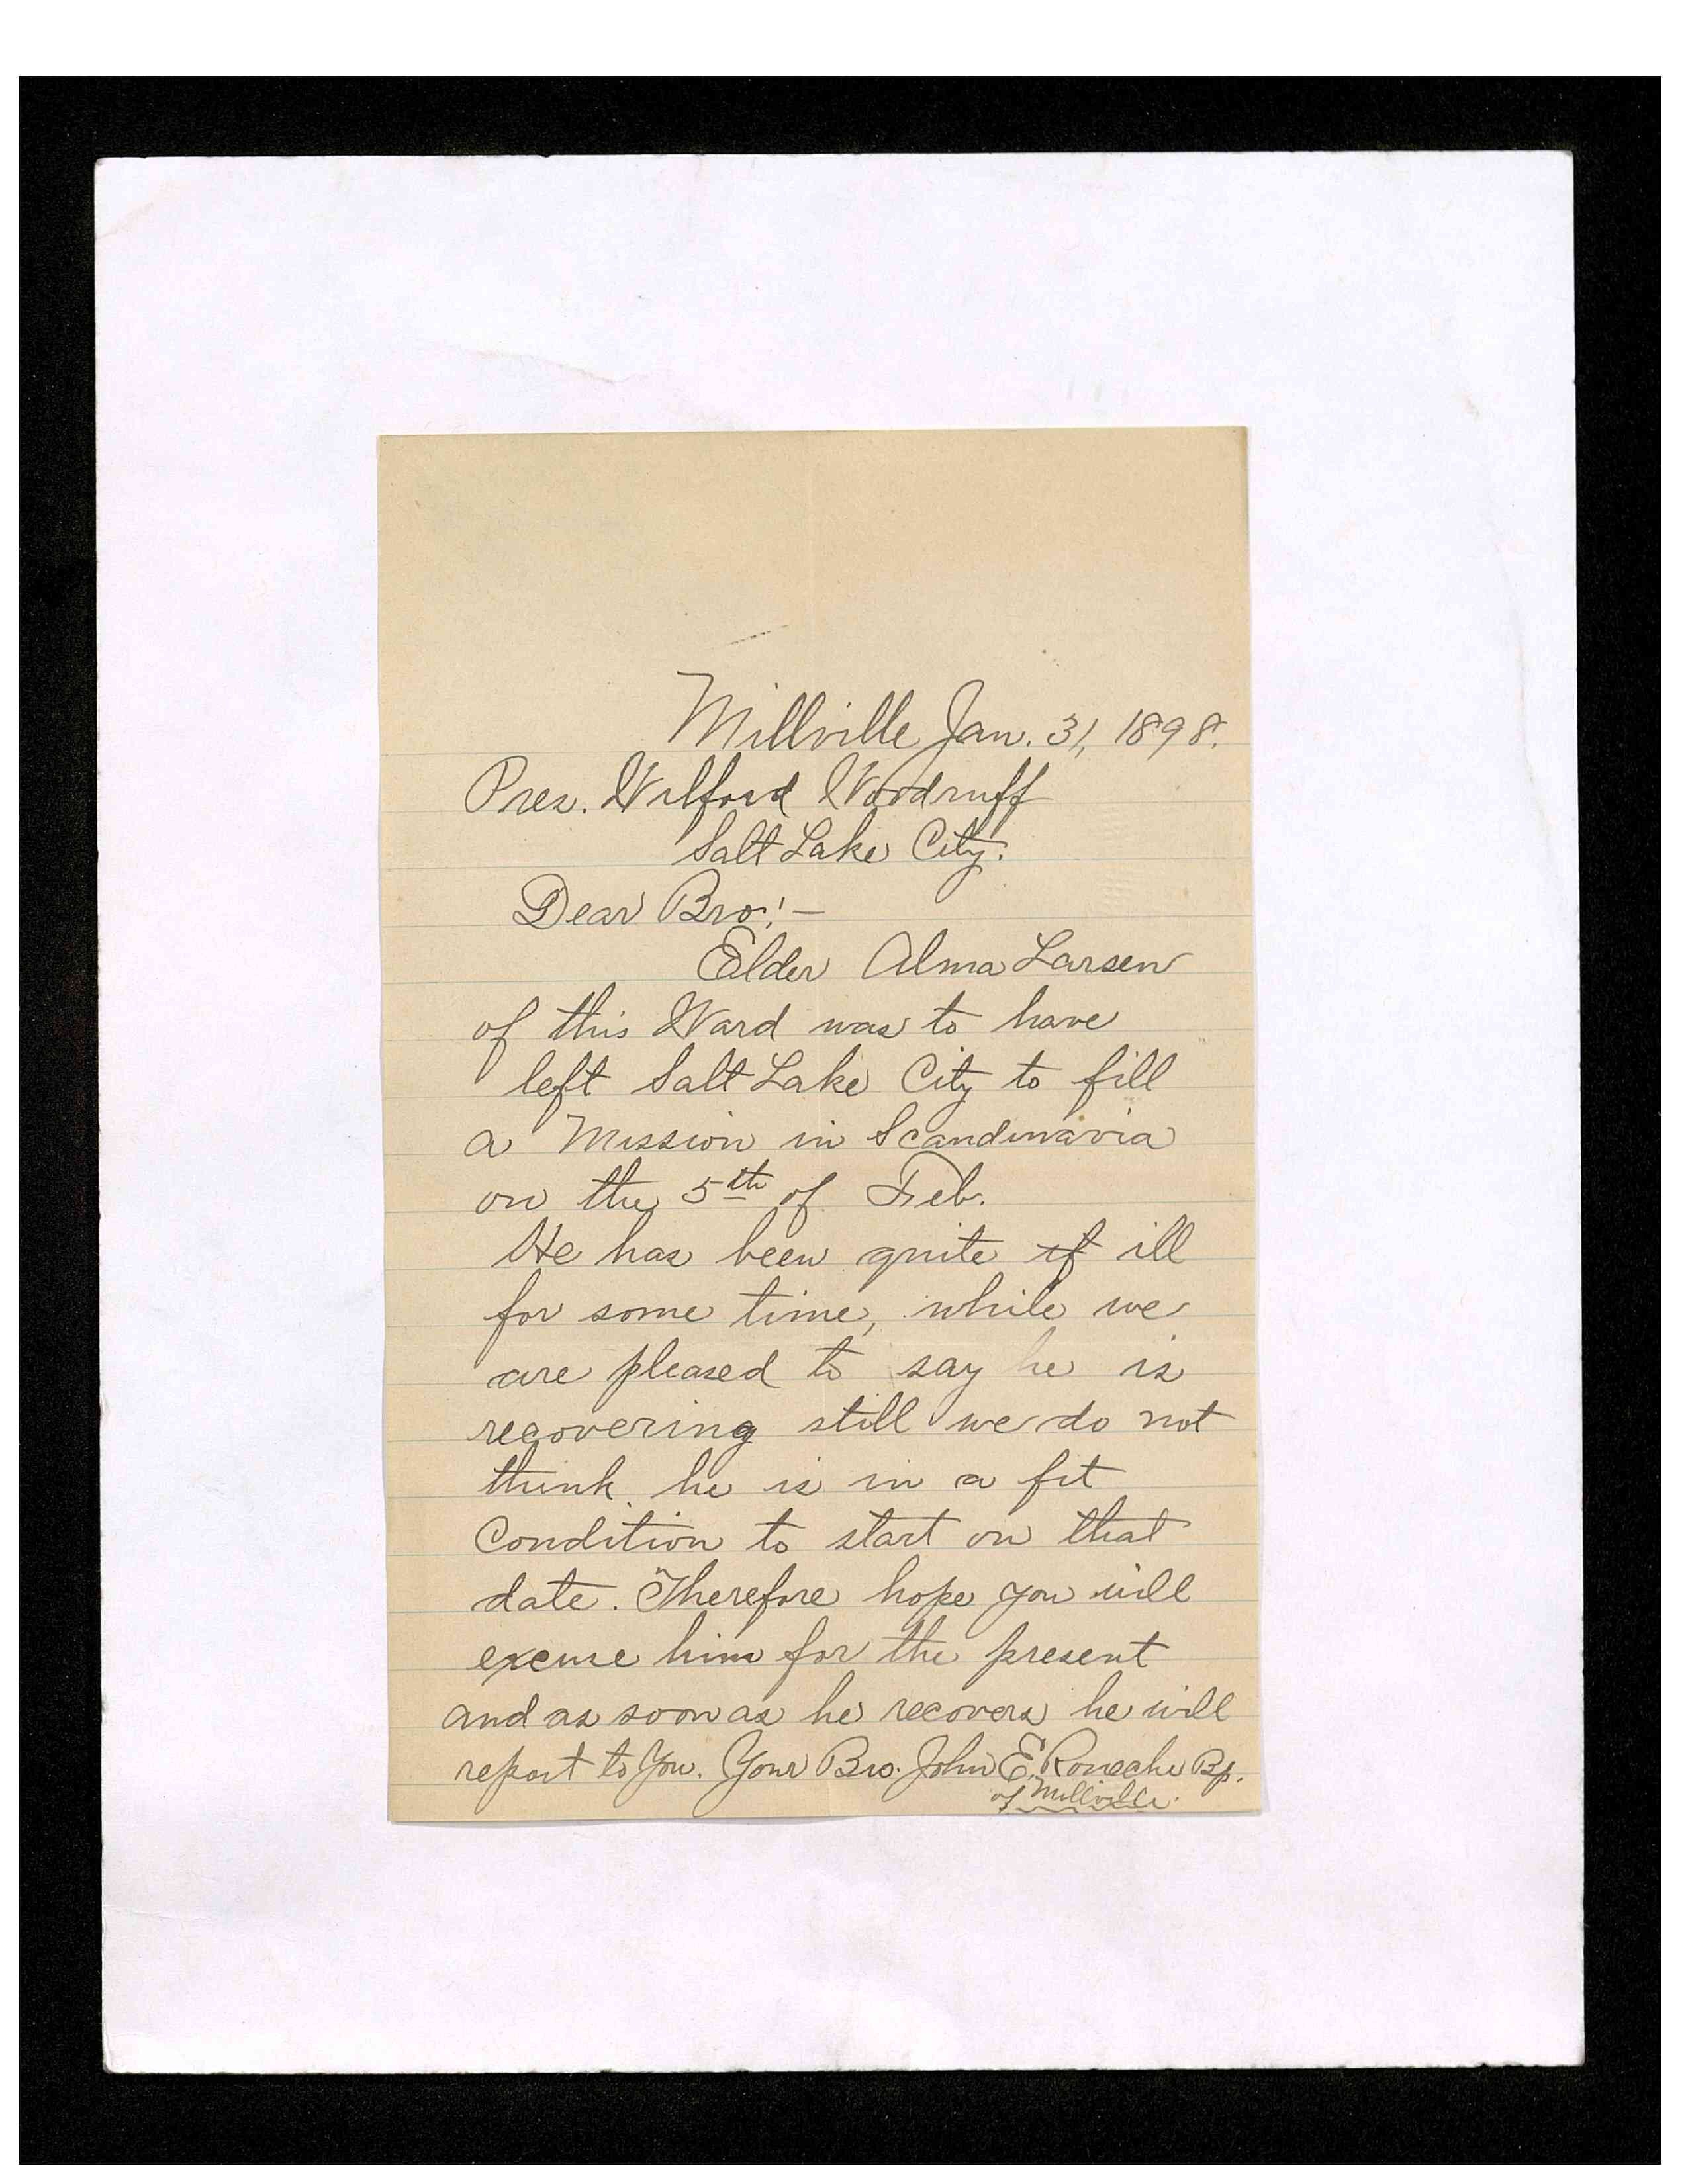 Millville Jan. 31, 1898.
Pres. Wilford Woodruff
Salt Lake City.
Dear Bro:—
Elder Alma Larsen
of this Ward was to have
left Salt Lake City to fill
a Mission in Scandinavia
on the 5th of Feb.
He has been quite if ill
for some time, while we
are pleased to say he is
recovering still we do not
think he is in a fit
Condition to start on that
date. Therefore hope you will
excuse him for the present
and as soon as he recovers he will
report to You. Your Bro. John E. Roueche Bp.
of Millville.